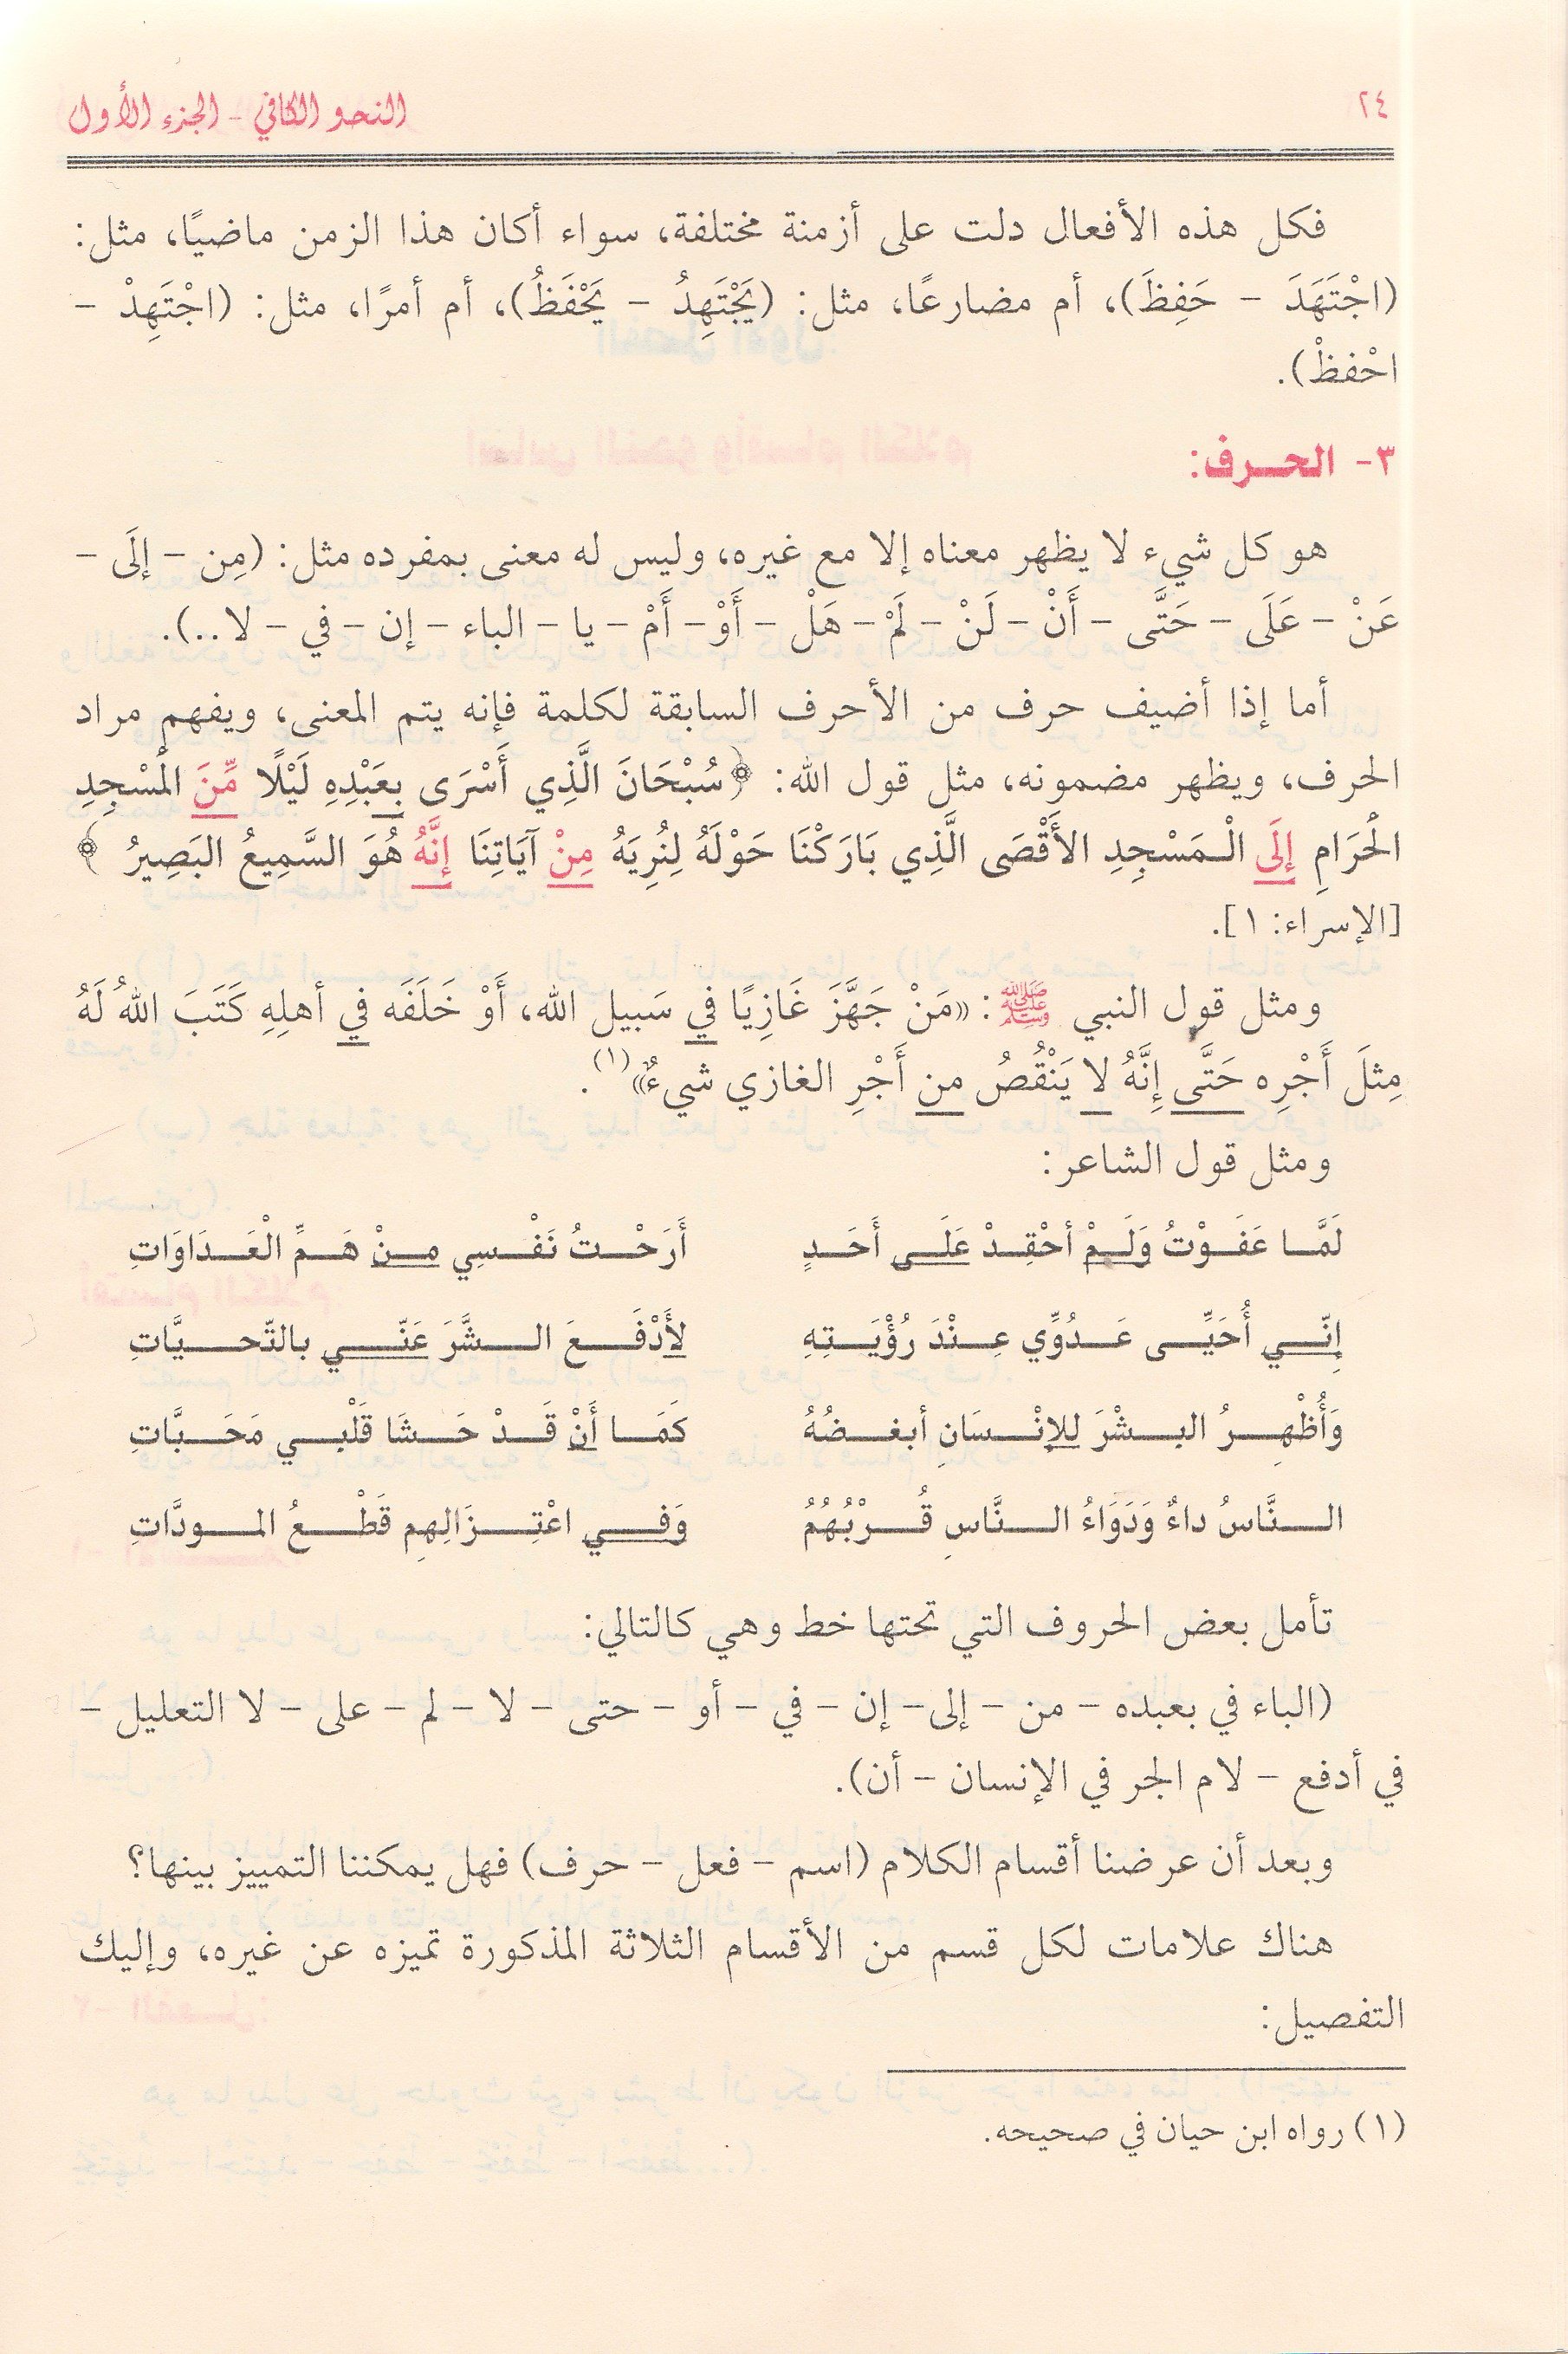 ٢٤
النحو الكافي - الجزء الأول
فكل هذه الأفعال دلت على أزمنة مختلفة، سواء أكان هذا الزمن ماضيًا، مثل:
(اجْتَهَدَ - حَفِظَ)، أم مضارعًا، مثل: (يَجْتَهِدُ - يَحْفَظُ)، أم أمرًا، مثل: (اجْتَهِدْ -
احْفظْ).
٣- الحـرف:
هو كل شيء لا يظهر معناه إلا مع غيره، وليس له معنى بمفرده مثل: (مِن - إلَى -
عَنْ - عَلَى - حَتَّى - أَنْ - لَنْ - لَمْ - هَلْ - أَوْ - أَمْ - يا - الباء - إن - في - لا ..).
أما إذا أضيف حرف من الأحرف السابقة لكلمة فإنه يتم المعنى، ويفهم مراد
الحرف، ويظهر مضمونه، مثل قول الله: ﴿سُبْحَانَ الَّذِي أَسْرَى بِعَبْدِهِ لَيْلًا مِّنَ الْمَسْجِدِ
الْحَرَامِ إلَى الْـمَسْجِدِ الأَقْصَى الَّذِي بَارَكْنَا حَوْلَهُ لِنُرِيَهُ مِنْ آيَاتِنَا إنَّهُ هُوَ السَّمِيعُ البَصِيرُ ﴾
[الإسراء: ١].
ومثل قول النبي ﷺ: «مَنْ جَهَّزَ غَازِيًا في سَبيل الله، أَوْ خَلَفَه في أهلِهِ كَتَبَ اللهُ لَهُ
مِثلَ أَجْرِه حَتَّى إِنَّهُ لا يَنْقُصُ من أَجْرِ الغازي شيءٌ»(١).
ومثل قول الشاعر:
لَمَّـا عَفَـوْتُ وَلَـمْ أحْقِـدْ عَلَـى أَحَـدٍ أَرَحْـتُ نَفْـسِي مـنْ هَـمِّ الْعَـدَاوَاتِ
إِنّـي أُحَيِّـى عَـدُوِّي عِـنْدَ رُؤْيَـتِهِ لأَدْفَـعَ الـشَّرَ عَنّـي بالتّحـيَّاتِ
وَأُظْهِـرُ البـشْرَ للإنْـسَانِ أبغـضُهُ كَمَـا أَنْ قَـدْ حَـشَا قَلْبـي مَحَـبَّاتِ
الـنَّاسُ داءٌ وَدَوَاءُ الـنَّاسِ قُـرْبُهُمُ وَفـي اعْتِـزَالِهِم قَطْـعُ المـودَّاتِ
تأمل بعض الحروف التي تحتها خط وهي كالتالي:
(الباء في بعبده - من - إلى - إن - في - أو - حتى - لا - لم - على - لا التعليل -
في أدفع - لام الجر في الإنسان - أن).
وبعد أن عرضنا أقسام الكلام (اسم - فعل - حرف) فهل يمكننا التمييز بينها؟
هناك علامات لكل قسم من الأقسام الثلاثة المذكورة تميزه عن غيره، وإليك
التفصيل:
(١) رواه ابن حيان في صحيحه.